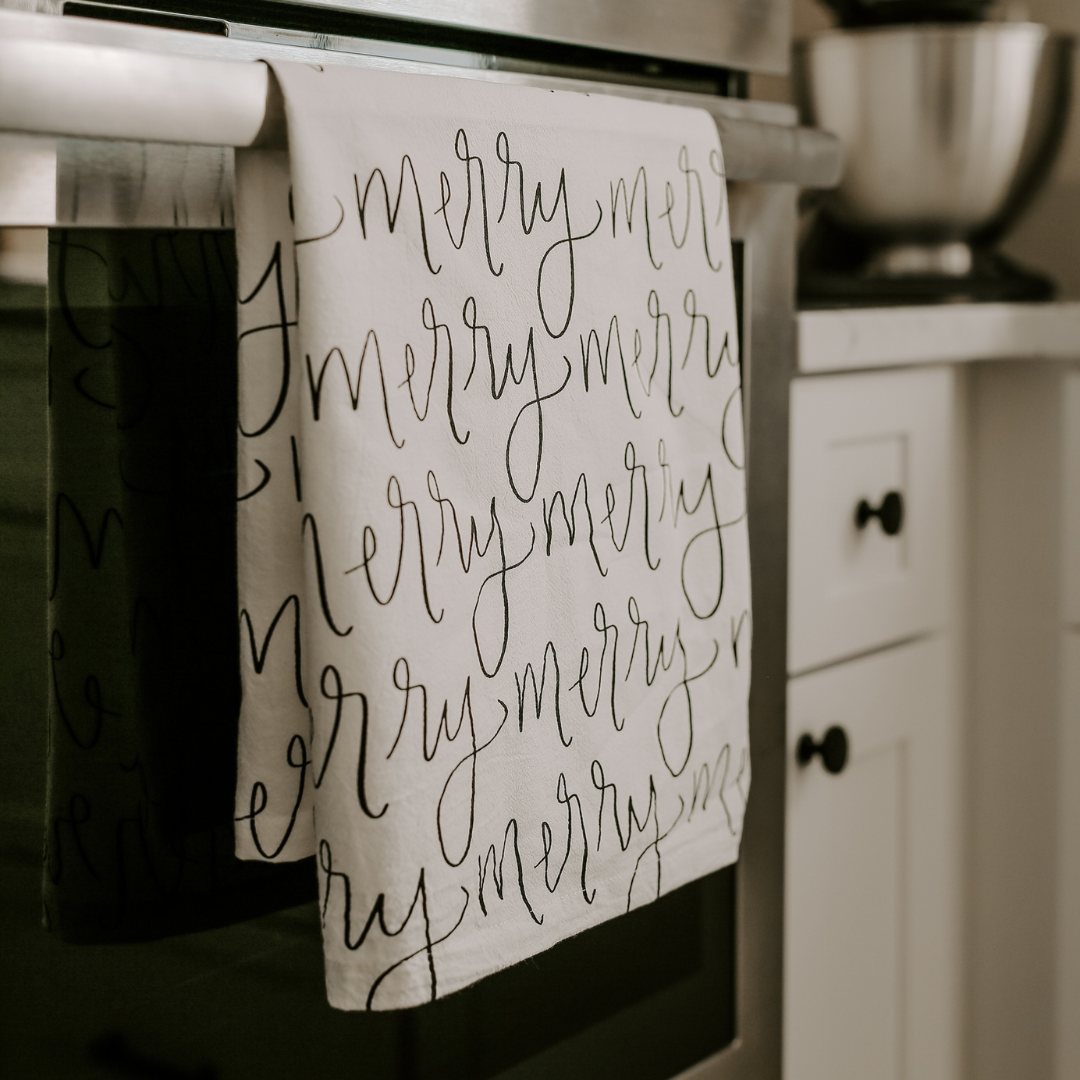 merry mer
merry merry
merry merry
rry merry
ry merry me